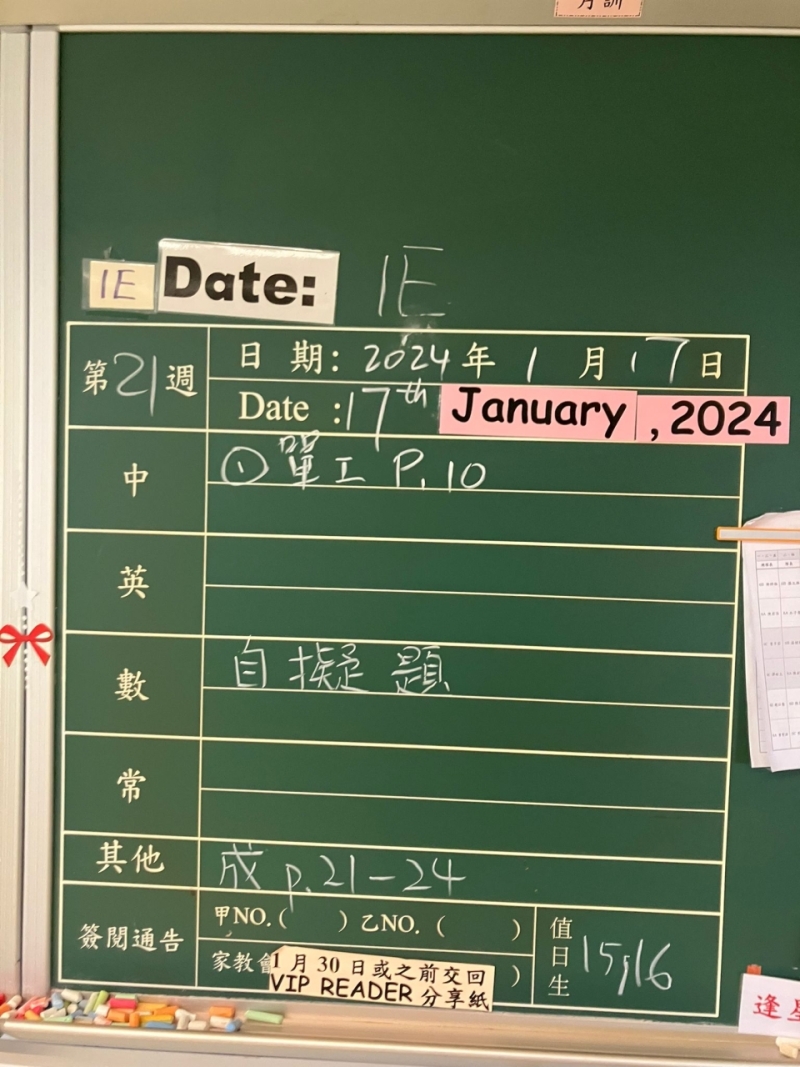 月訓
1E Date: 1E
第21週
日 期: 2024年 1 月 17日
Date :17th January, 2024
中
① 單工 P.10
英
數
自擬題
常
其他
成 p.21-24
簽閱通告
甲NO.( ) 乙NO. ( )
家教會
1月30日或之前交回
VIP READER 分享紙
)
值日生
15,16
逢星